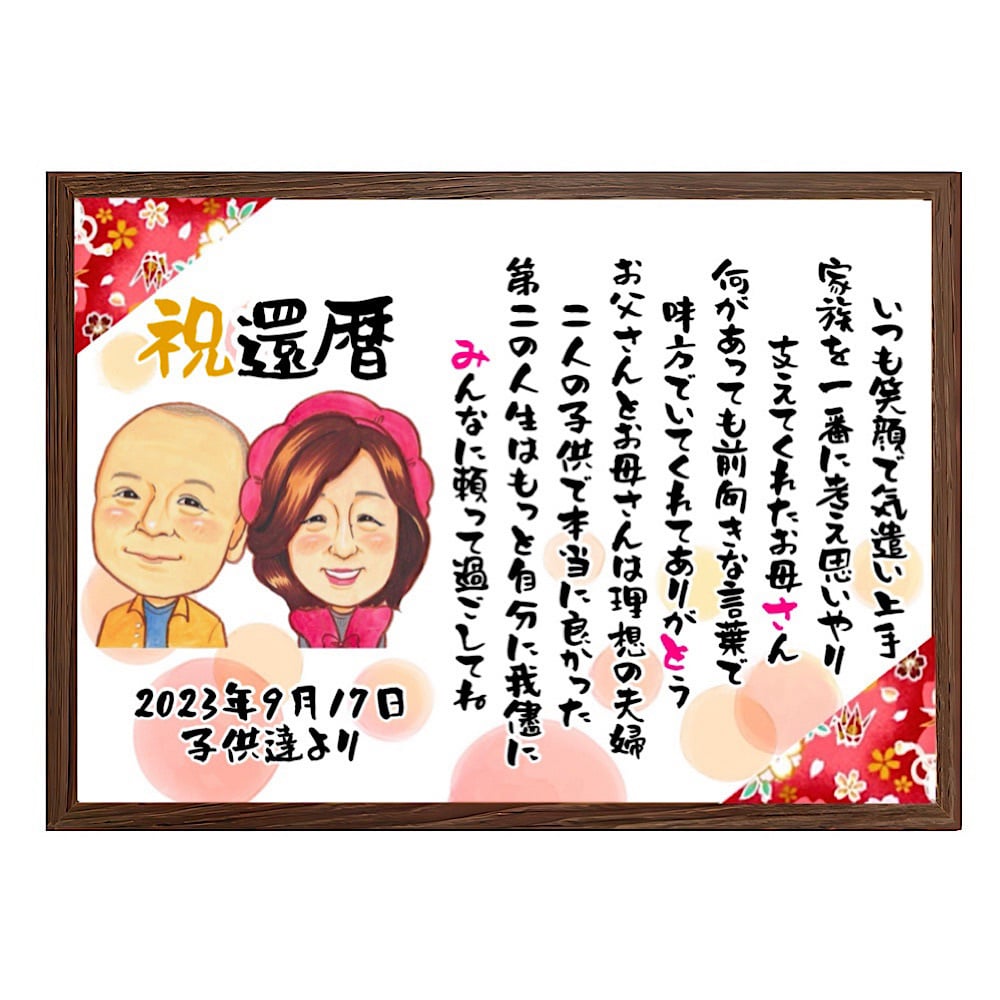 いつも笑顔で気遣い上手
家族を一番に考え思いやり
支えてくれたお母さん
何があっても前向きな言葉で
味方でいてくれてありがとう
お父さんとお母さんは理想の夫婦
二人の子供で本当に良かった
第二の人生はもっと自分に我儘に
みんなに頼って過ごしてね
祝還暦
2023年9月17日
子供達より